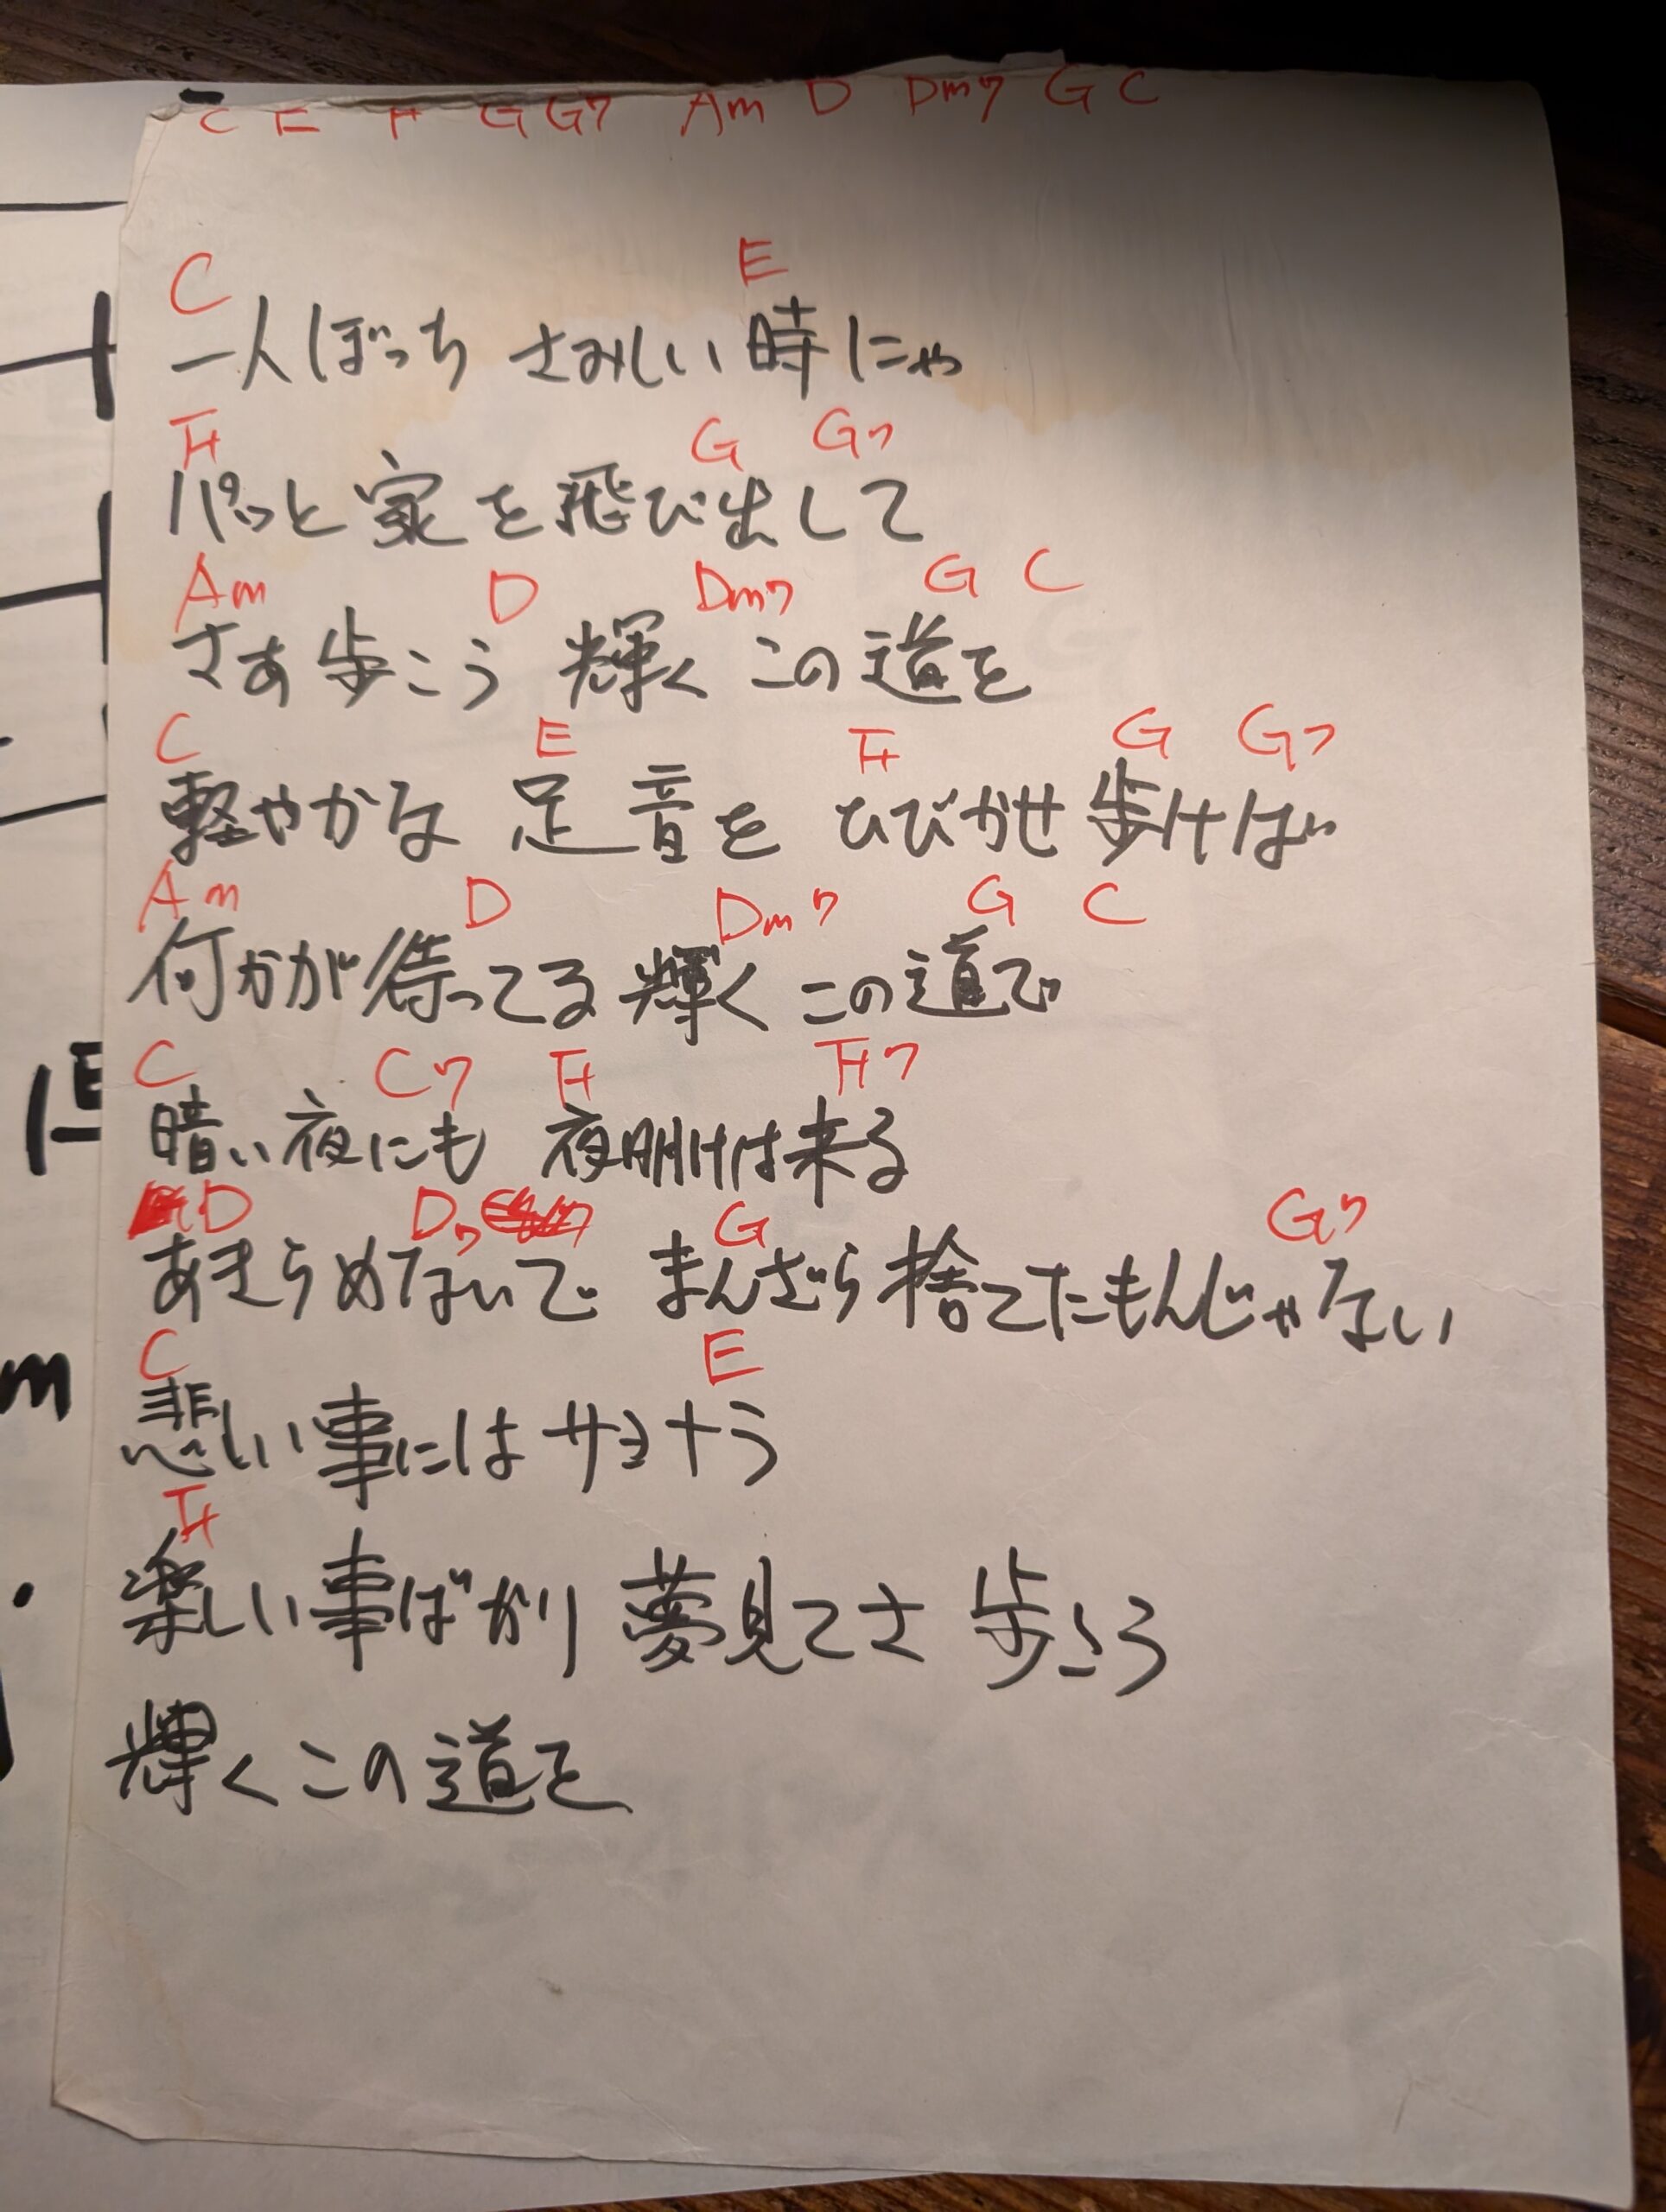 C E F G G7 Am D Dm7 G C
C E
一人ぼっち さみしい 時にゃ
F G G7
パッと 家を飛び出して
Am D Dm7 G C
さあ歩こう 輝く この道を
C E F G G7
軽やかな 足音を ひびかせ 歩けば
Am D Dm7 G C
何かが待ってる 輝く この道で
C C7 F F7
暗い夜にも 夜明けは来る
D D7 G G7
あきらめないで まんざら捨てたもんじゃない
C E
悲しい事には サヨナラ
F
楽しい事ばかり 夢見てさ 歩こう
輝くこの道を
m